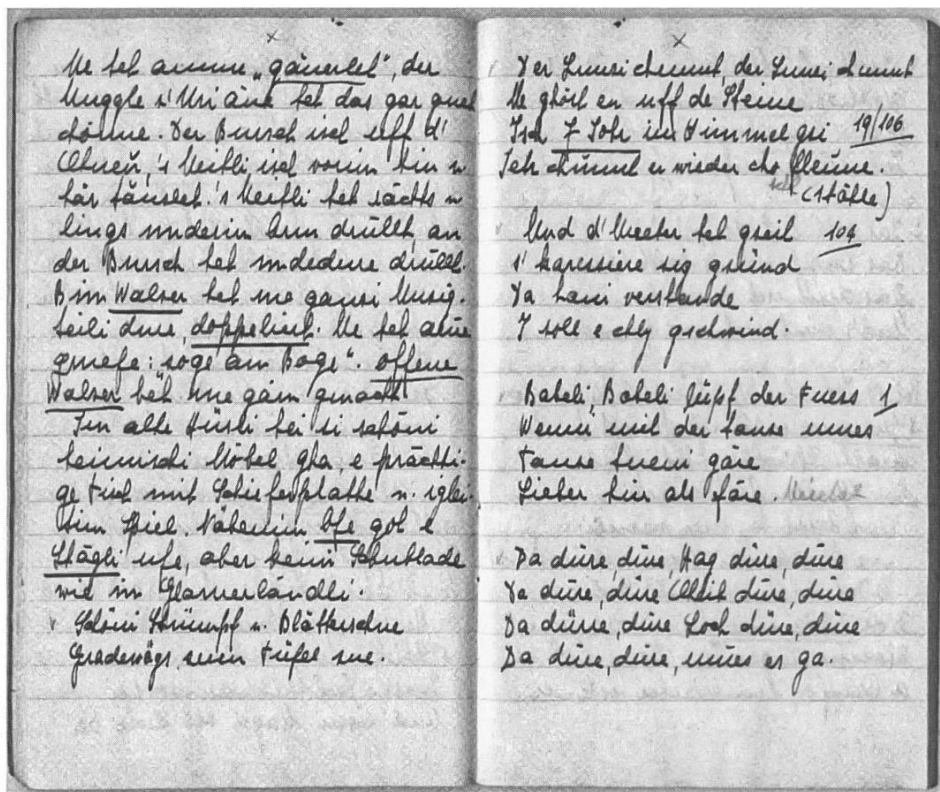 ×
Me het amme „gäuerlet", der
Muggle s'Uri äne het das gar guet
chönne. Der Bursch isch uff d'
Chneü, 's Meitli isch vorim hin u
här tänzlet. 's Meitli het rächts u
lings underim Arm drüllt, au
der Bursch het undedure drüllt.
Bim Walzer het me gansi Musig-
teili dure, doppelint. Me het
gruefe: soge am Boge". offene
Walzer het me gärn gmacht
Im alte Hüsli hei si schöni
heimischi Möbel gha, e prächti-
ge Tisch mit Schieferplatte u. igleι-
tim Spiel. Näbenim Ofe got e
Stägli ufe, aber keini Schublade
wie im Glarnerländli.
Schöni Strümpf u. Blätterschue
Gradewägs zum Tüfel zue.
×
Der Lunzi chunnt, der Lunzi chunnt
Me ghört en uff de Steine
Isch 7 Johr im Himmel gsi 19/106
Jetz chunnt er wieder cho fleune.
(stähle)
Und d'Mueter het gseit 104
s'karessiere sig gsünd
Da hani verstande
I soll e chly gschwind.
Babeli, Babeli lüpf der Fuess 1
Wenni mit der tanze mues
Tanze tueni gäre
Lieber hin als färe.
Da düre, düre, Hag düre, düre
Da düre, düre düre, düre
Da düre, düre Loch düre, düre
Da düre, düre, mues er ga.